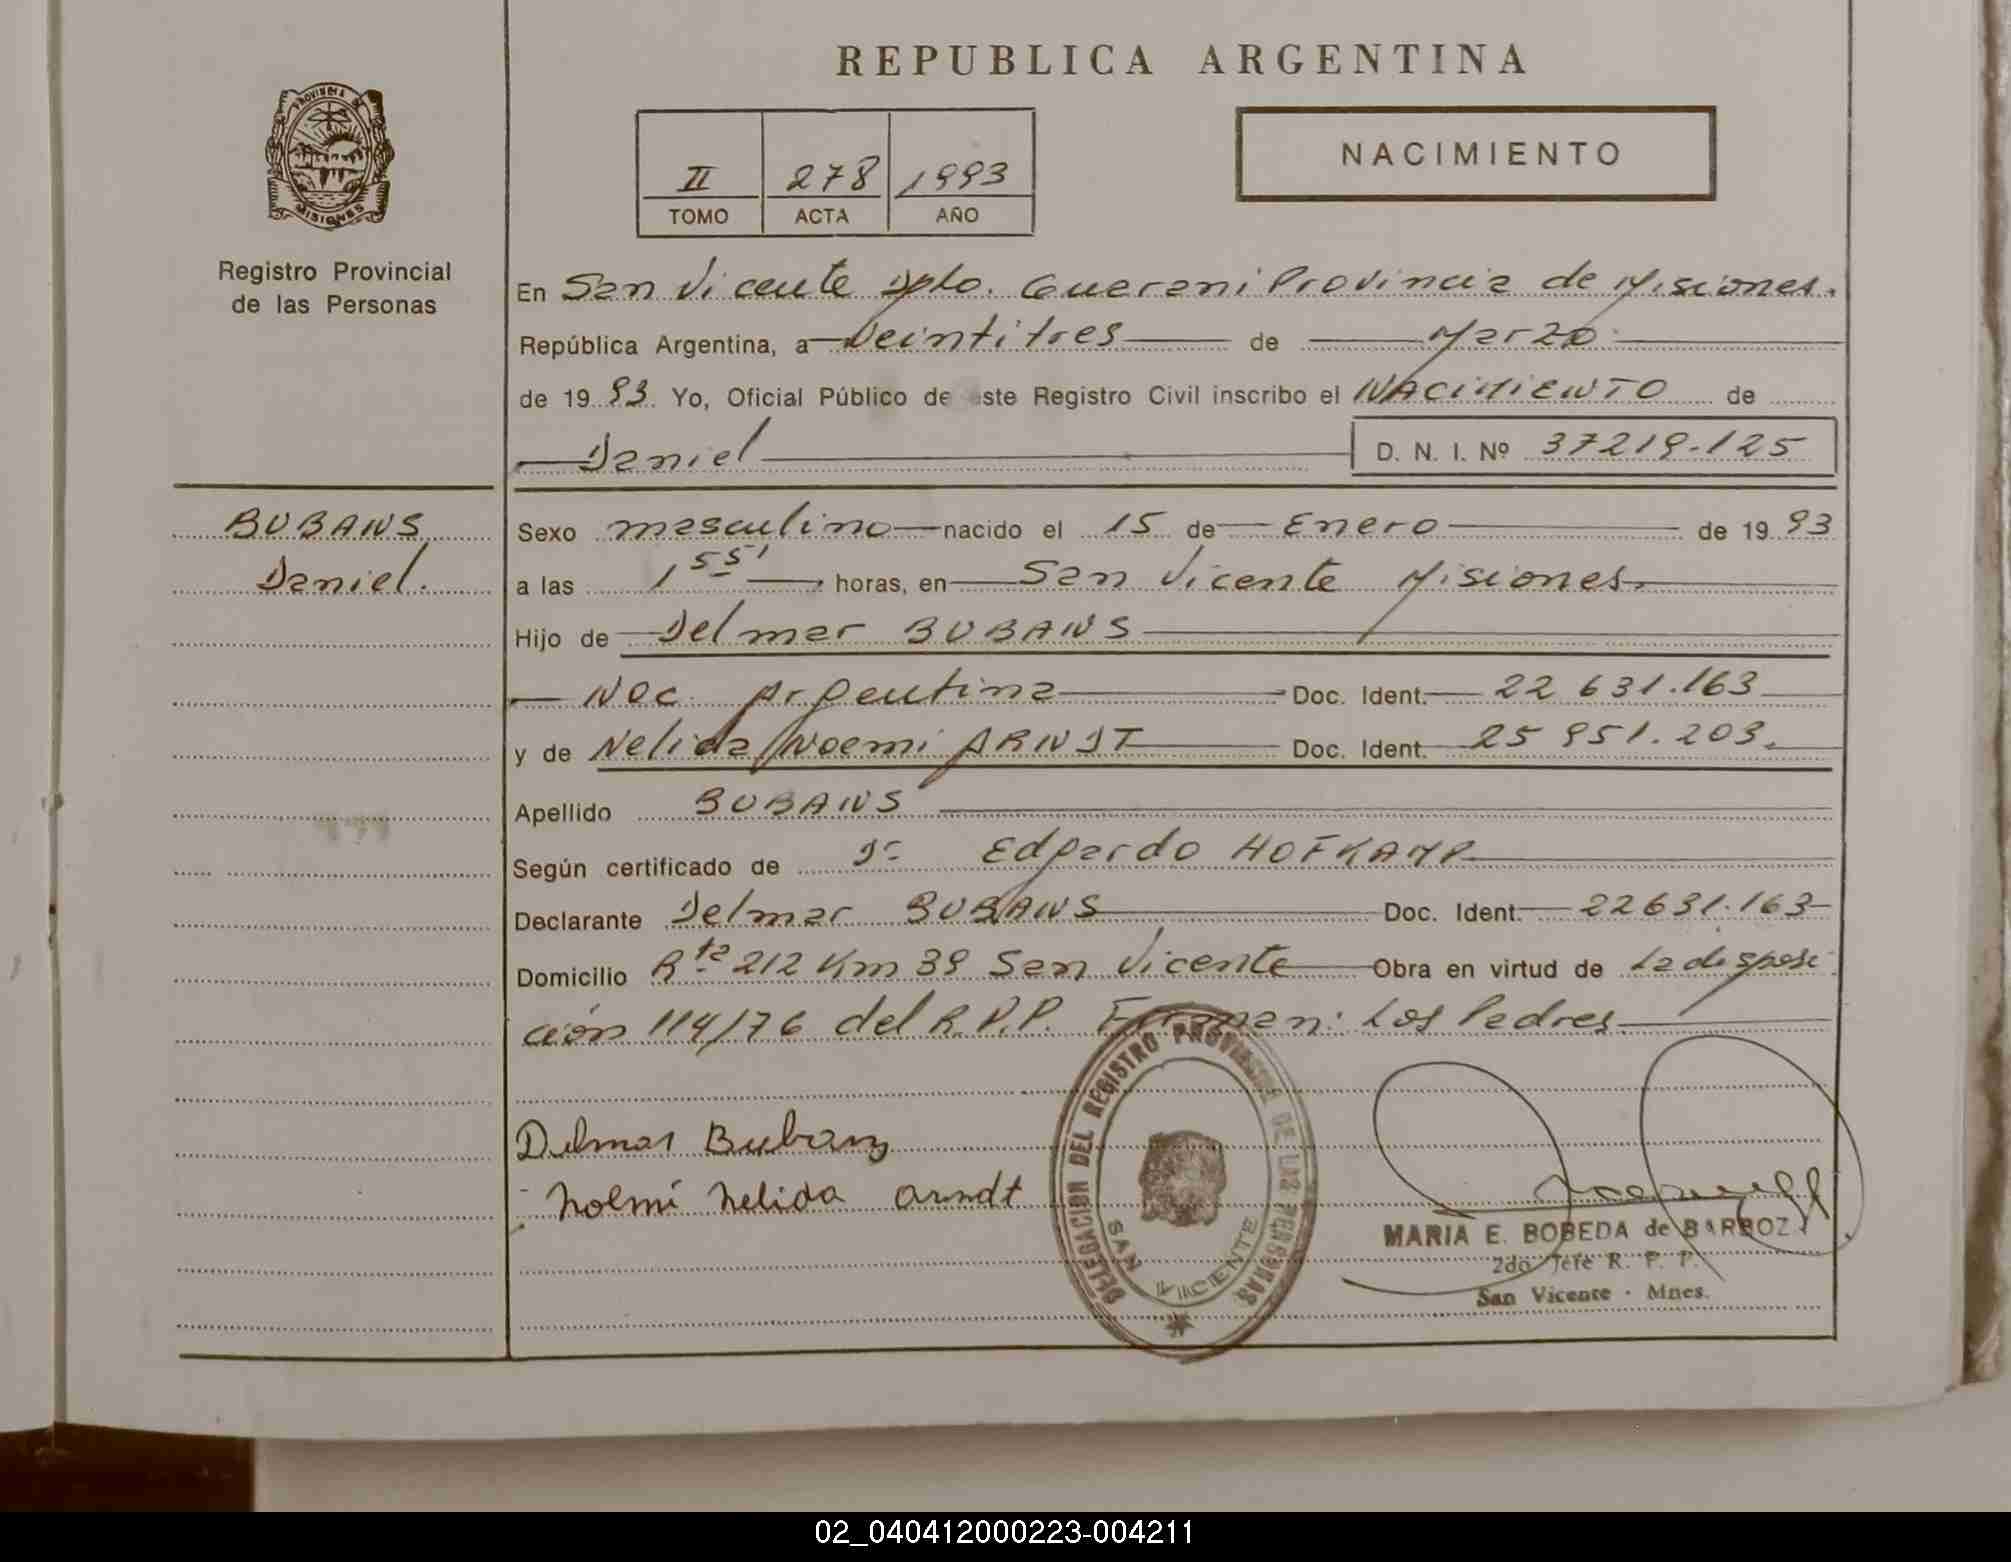 REPUBLICA ARGENTINA
PROVINCIA DE
MISIONES
Registro Provincial
de las Personas
II 278 1993
TOMO ACTA AÑO
NACIMIENTO
En San Vicente Dpto. Guarani Provincia de Misiones.
República Argentina, a Veintitres de Marzo
de 1993. Yo, Oficial Público de este Registro Civil inscribo el NACIMIENTO de
Daniel D. N. I. Nº 37219.125
BUBANS
Daniel.
Sexo masculino nacido el 15 de Enero de 1993
a las 1 55' horas, en San Vicente Misiones.
Hijo de Delmar BUBANS
Nac. Argentina Doc. Ident. 22 631.163
y de Nelida Noemi ARNDT Doc. Ident. 25 951.203.
Apellido BUBANS
Según certificado de Dr Edgardo HOFKAMP
Declarante Delmar BUBANS Doc. Ident. 22631.163
Domicilio Rta 212 Km 39 San Vicente Obra en virtud de La disposi
ción 114/76 del R.P.P. Firman: Los Padres
Delmar Bubanz
Noemi Nelida Arndt
DELEGACION DEL REGISTRO PROVINCIAL DE LAS PERSONAS
SAN VICENTE
MARIA E. BOBEDA de BARBOZA
2do Jefe R. P. P.
San Vicente - Mnes.
02_040412000223-004211